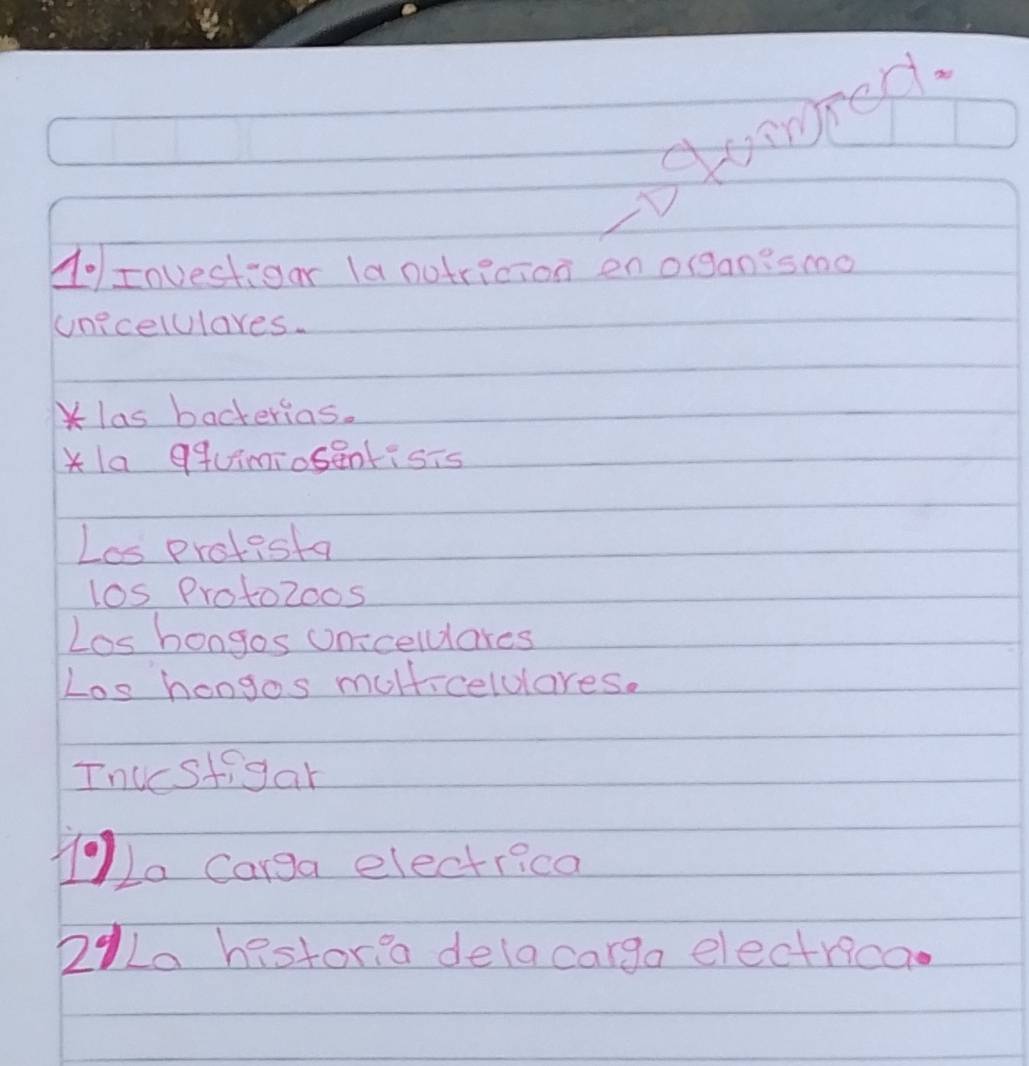 1°) Investigar la nutricion en organismo
unicelulares.
* las bacterias.
* la qquimiosentisis
Los protista
los Protozoos
Los hongos unicelulares
Los hongos multicelulares.
Investigar
1°) La carga electrica
2°) La historia dela carga electrica.